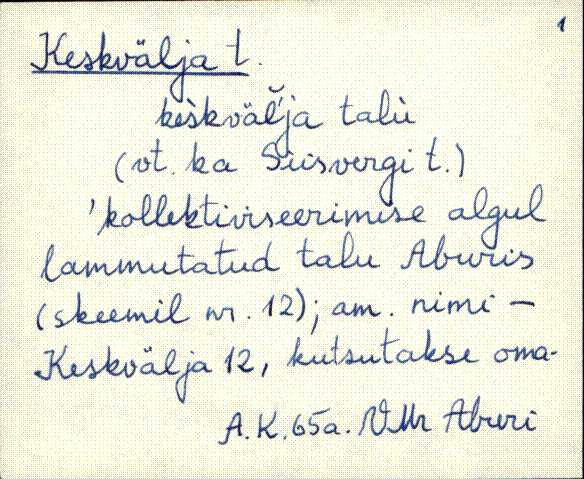 1
Keskvälja t.
keskvälja talu
(vt. ka Siisvergi t.)
'kollektiviseerimise algul
lammutatud talu Aburis
(skeemil nr. 12); am. nimi —
Keskvälja 12, kutsutakse oma-
A.K. 65a. VMr Aburi